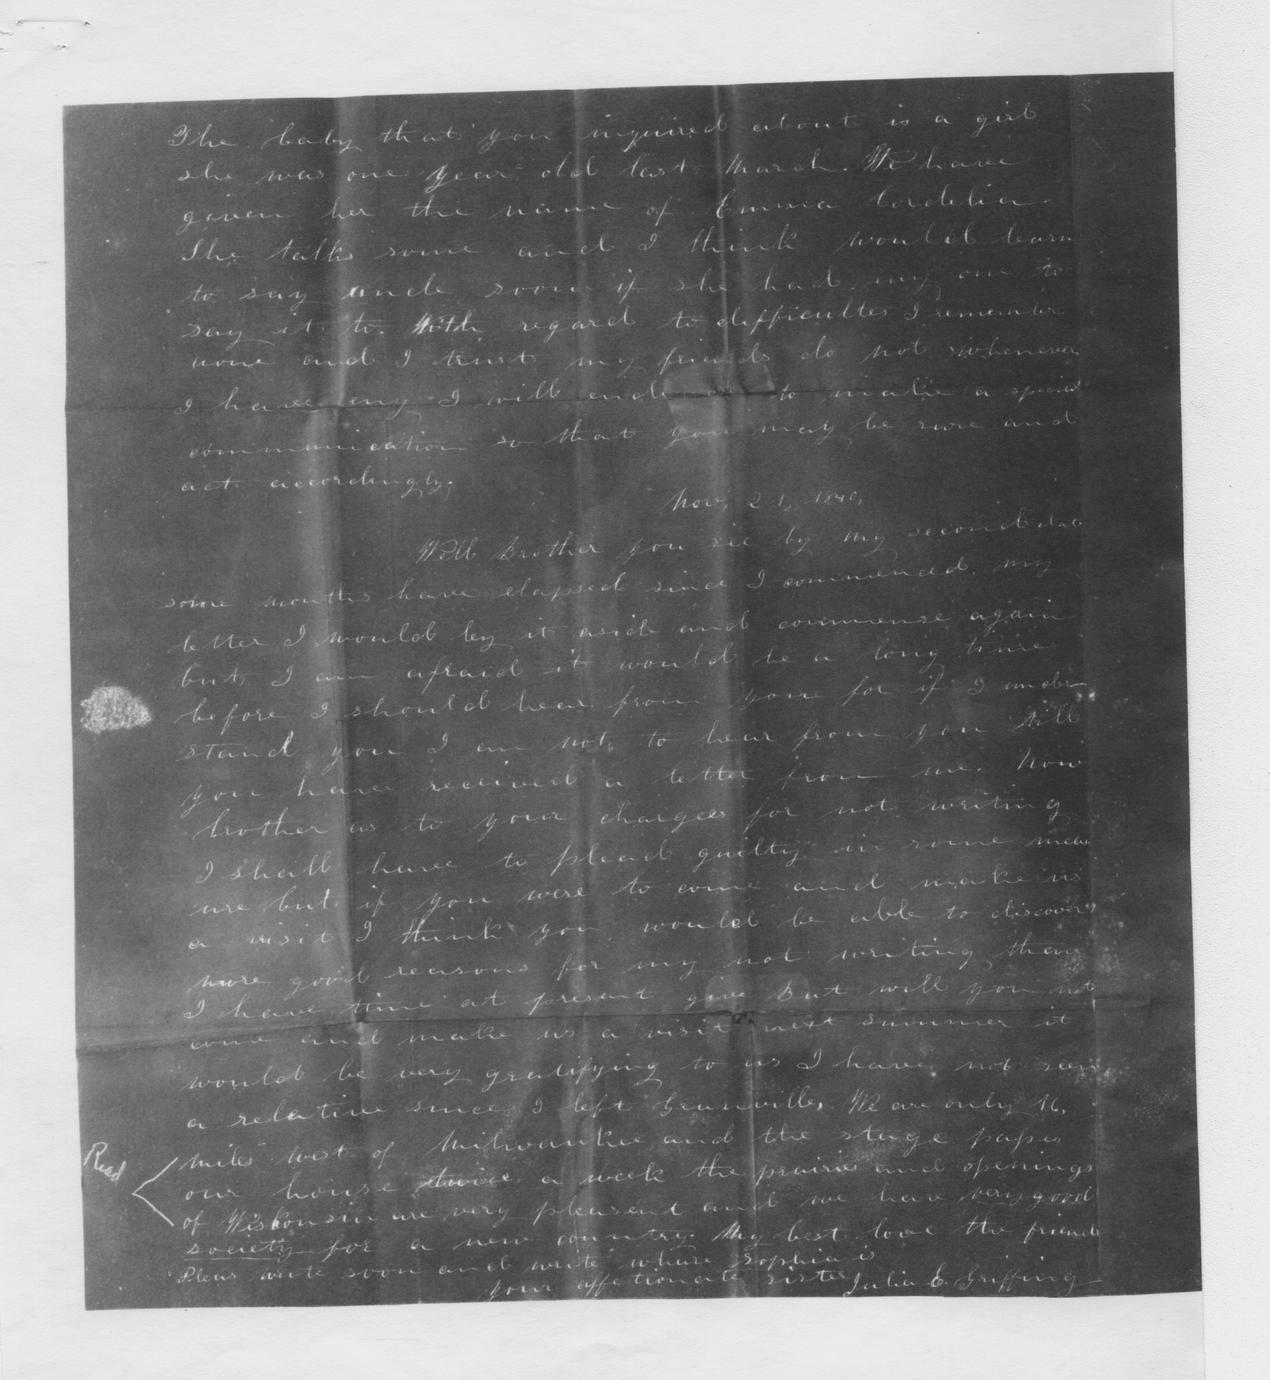 The baby that you inquired about is a girl
she was one year old last March. We have
given her the name of Emma Cordelia
She talks some and I think would learn
to say uncle soon if she had any one to
say it to. With regard to difficultes I remember
none and I trust my friends do not whenever
I have any I will to make a special
communication so that you may be sure and
act accordingly.
Nov, 21, 1840,
Well Brother you see by my second date
some months have elapsed since I commenced my
letter I would lay it aside and commense again
but I am afraid it would be a long time
before I should hear from you for if I under
stand you I am not to hear from you till
you have received a letter from me. Now
brother as to your charges for not writing
I shall have to plead guilty in some meas
ure but if you were to come and make us
a visit I think you would be able to discover
more good reasons for my not writing then
I have time at present give But will you not
come and make us a visit next summer it
would be very gratifying to us I have not seen
a relative since I left We are only 16,
miles west of Milwaukie and the stage passes
our house twice a week the prairies and openings
of Wiskonsin are very pleasent and we have very good
society for a new country. My best love the friends
Pleas write soon and write whare Sophia is
your affectionate sister Julia E. Griffing
Read